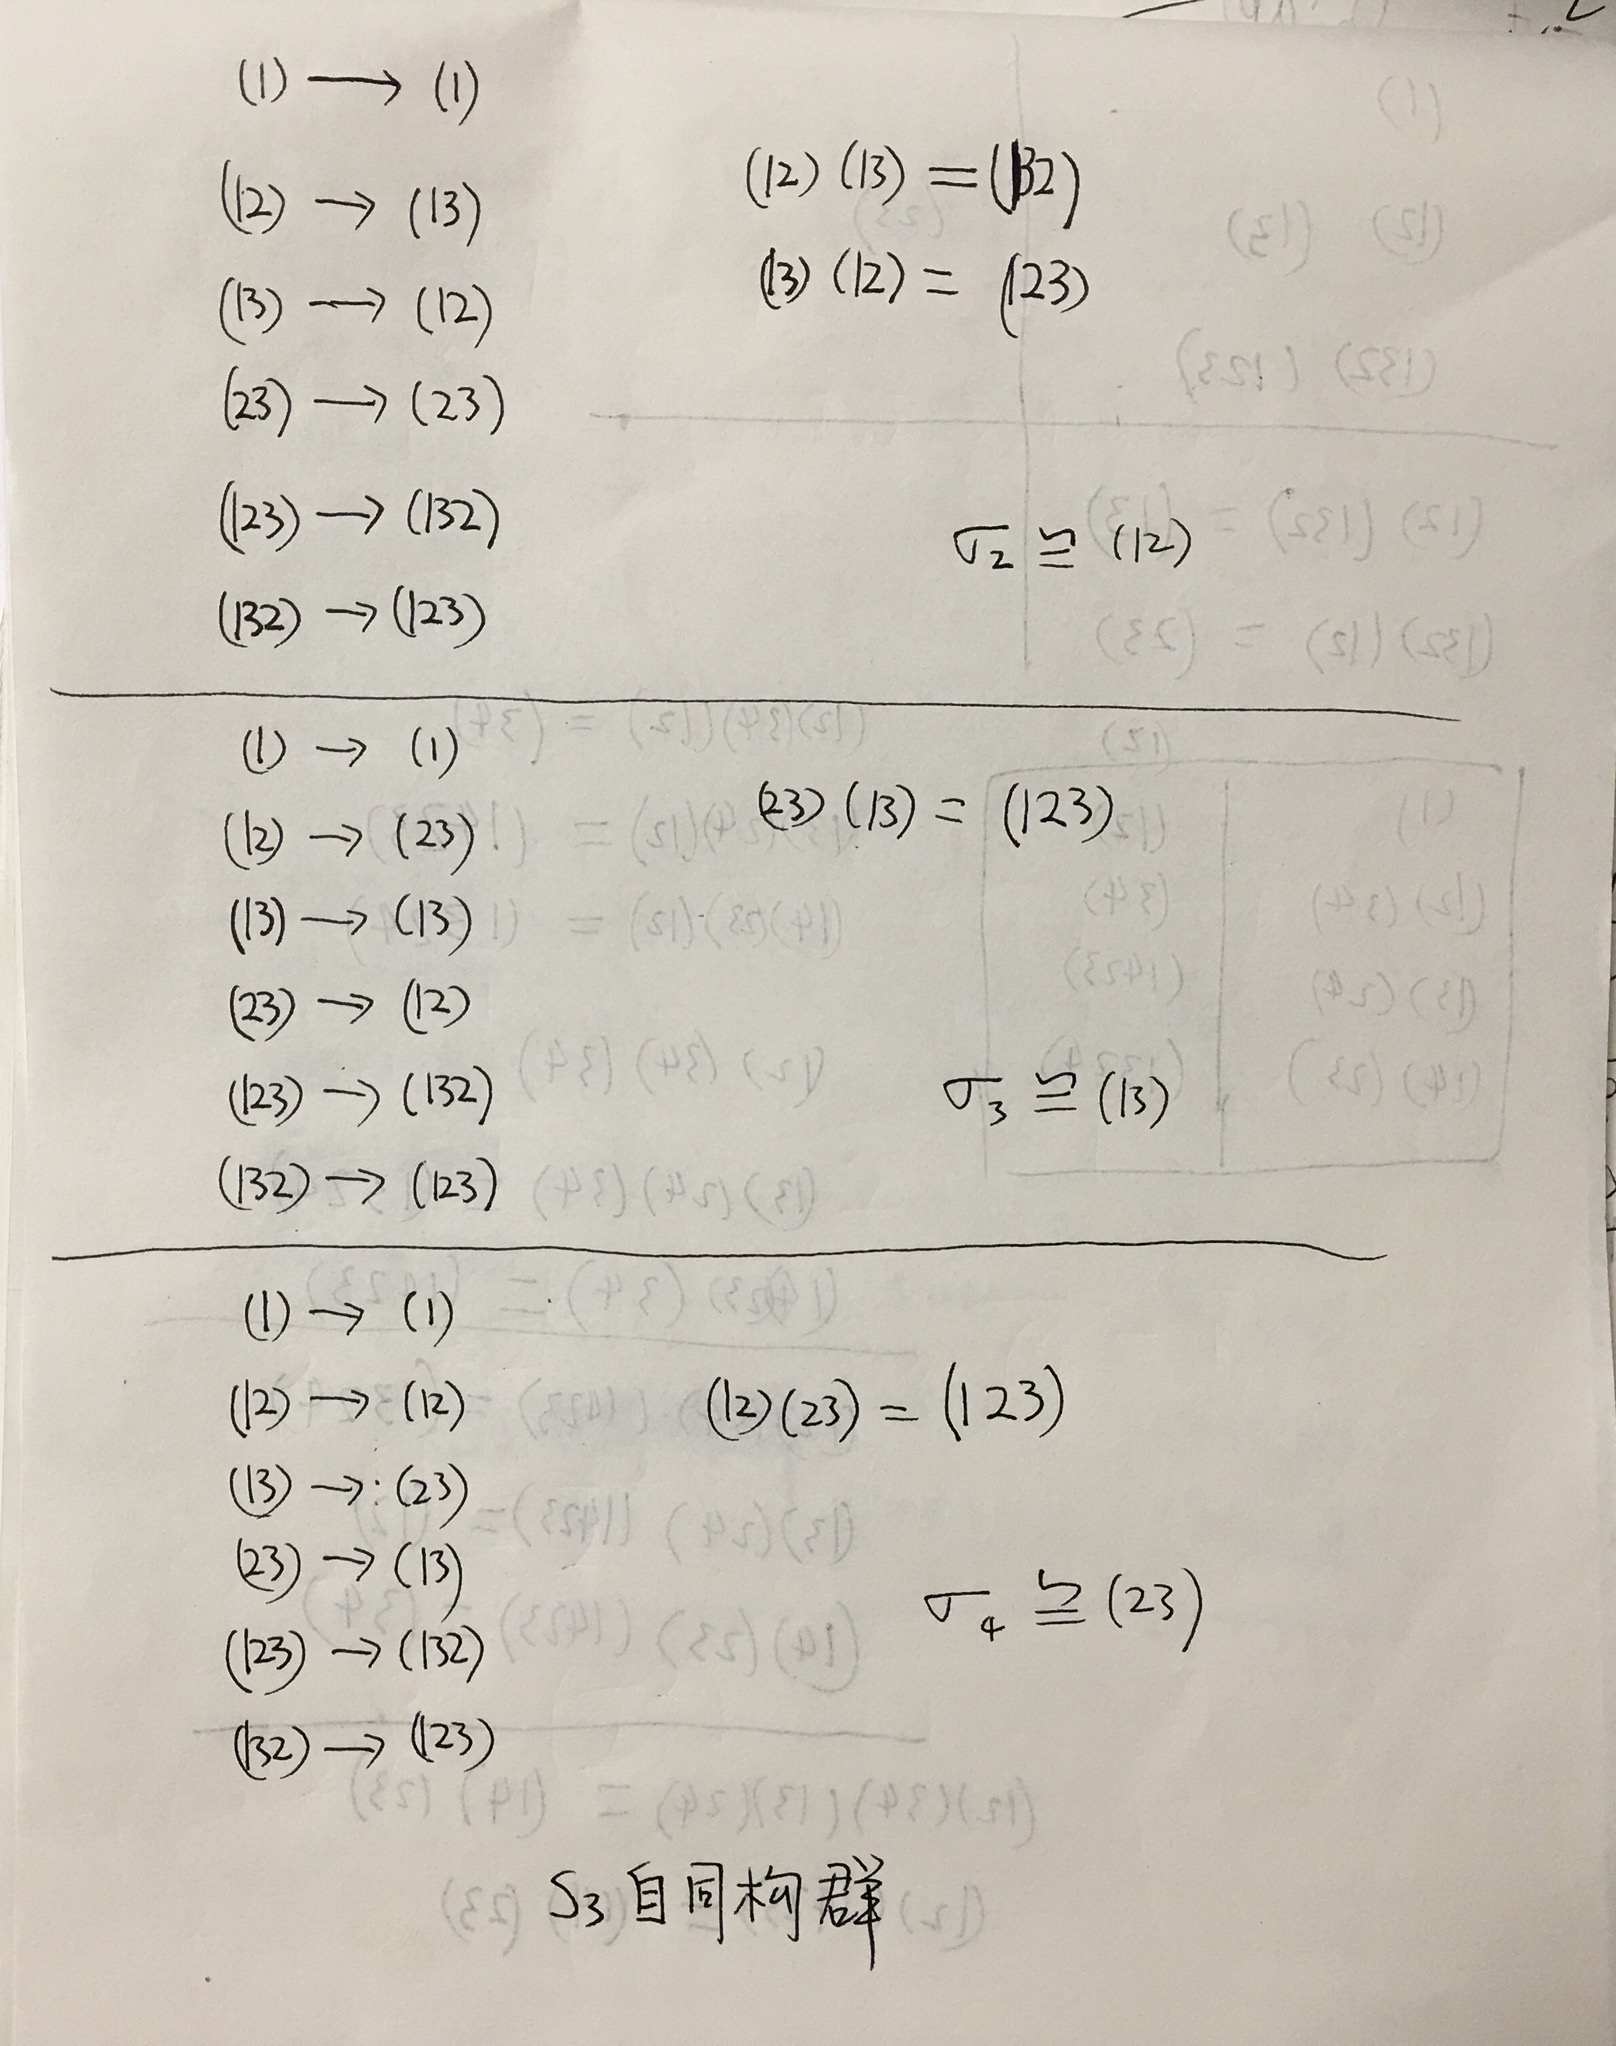 (1) → (1)
(12) → (13)
(13) → (12)
(23) → (23)
(123) → (132)
(132) → (123)
(12) (13) = (132)
(13) (12) = (123)
σ₂ ≌ (12)
(1) → (1)
(12) → (23)
(13) → (13)
(23) → (12)
(123) → (132)
(132) → (123)
(23) (13) = (123)
σ₃ ≌ (13)
(1) → (1)
(12) → (12)
(13) → (23)
(23) → (13)
(123) → (132)
(132) → (123)
(12) (23) = (123)
σ₄ ≌ (23)
S₃自同构群